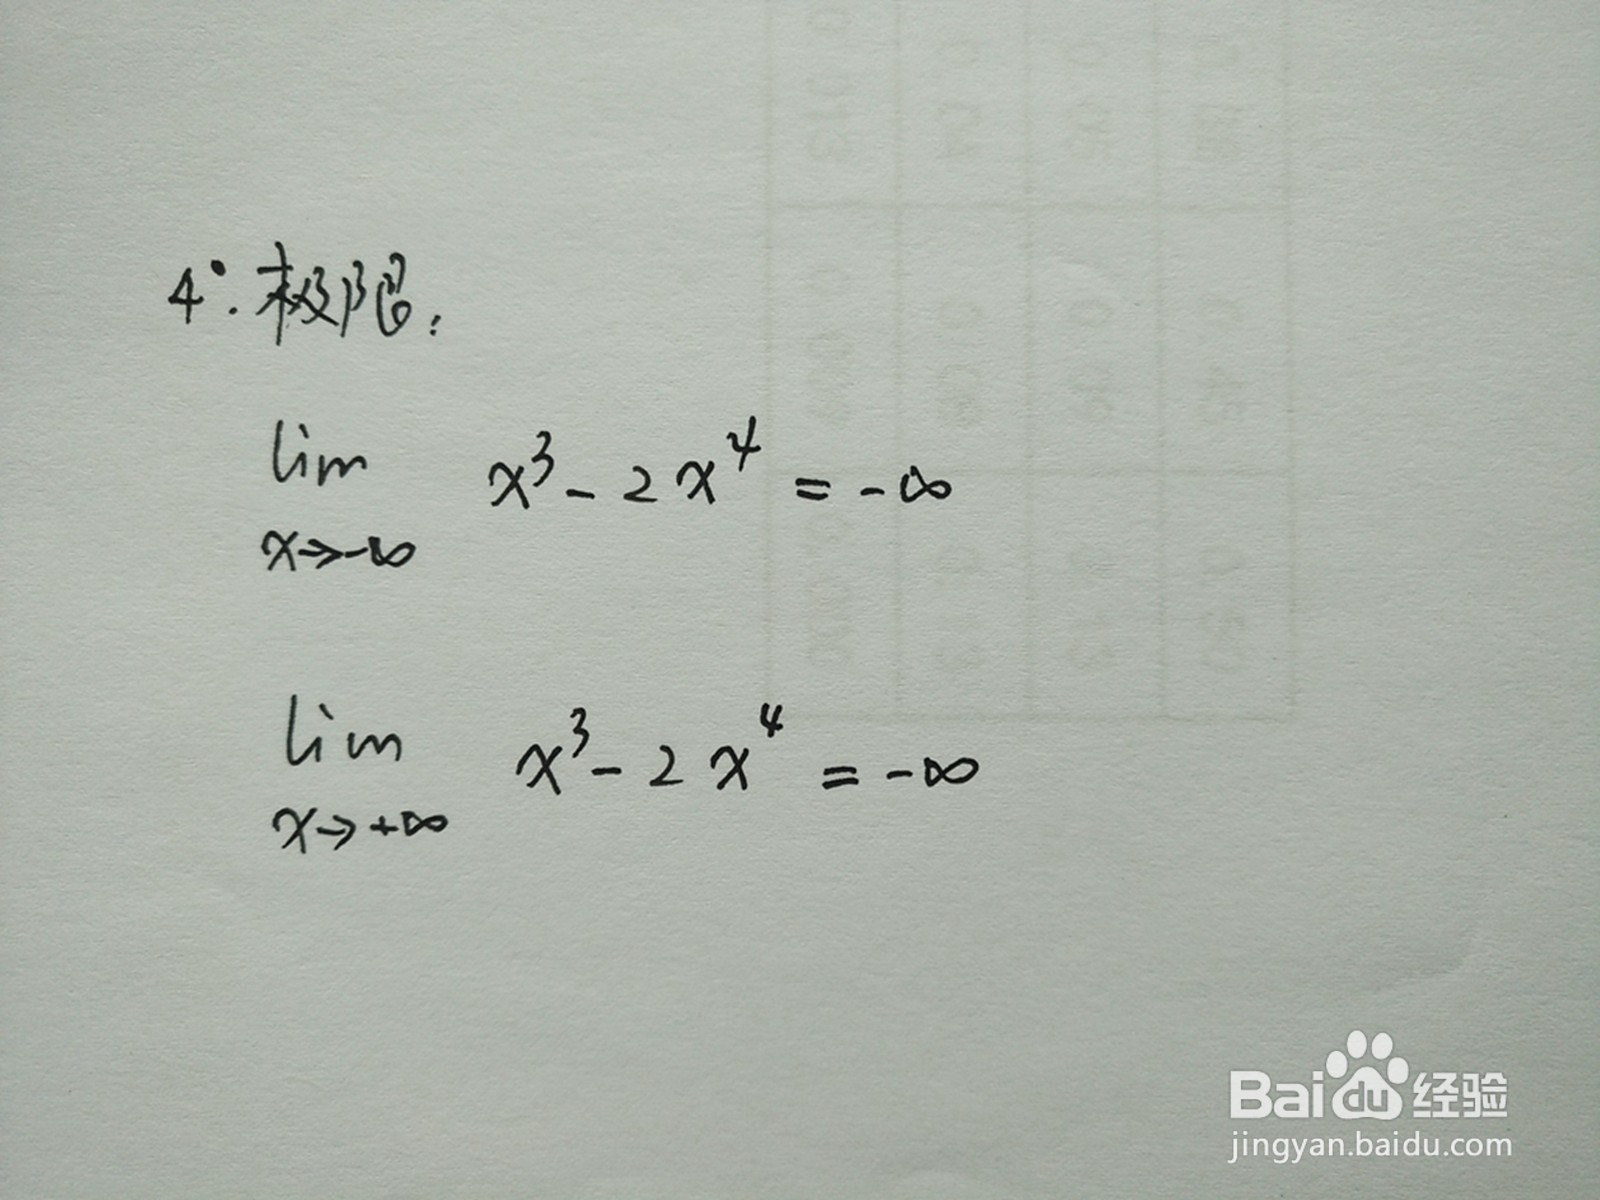 4°. 极限:
lim x³ - 2x⁴ = -∞
x→-∞
lim x³ - 2x⁴ = -∞
x→+∞
Baidu 经验
jingyan.baidu.com